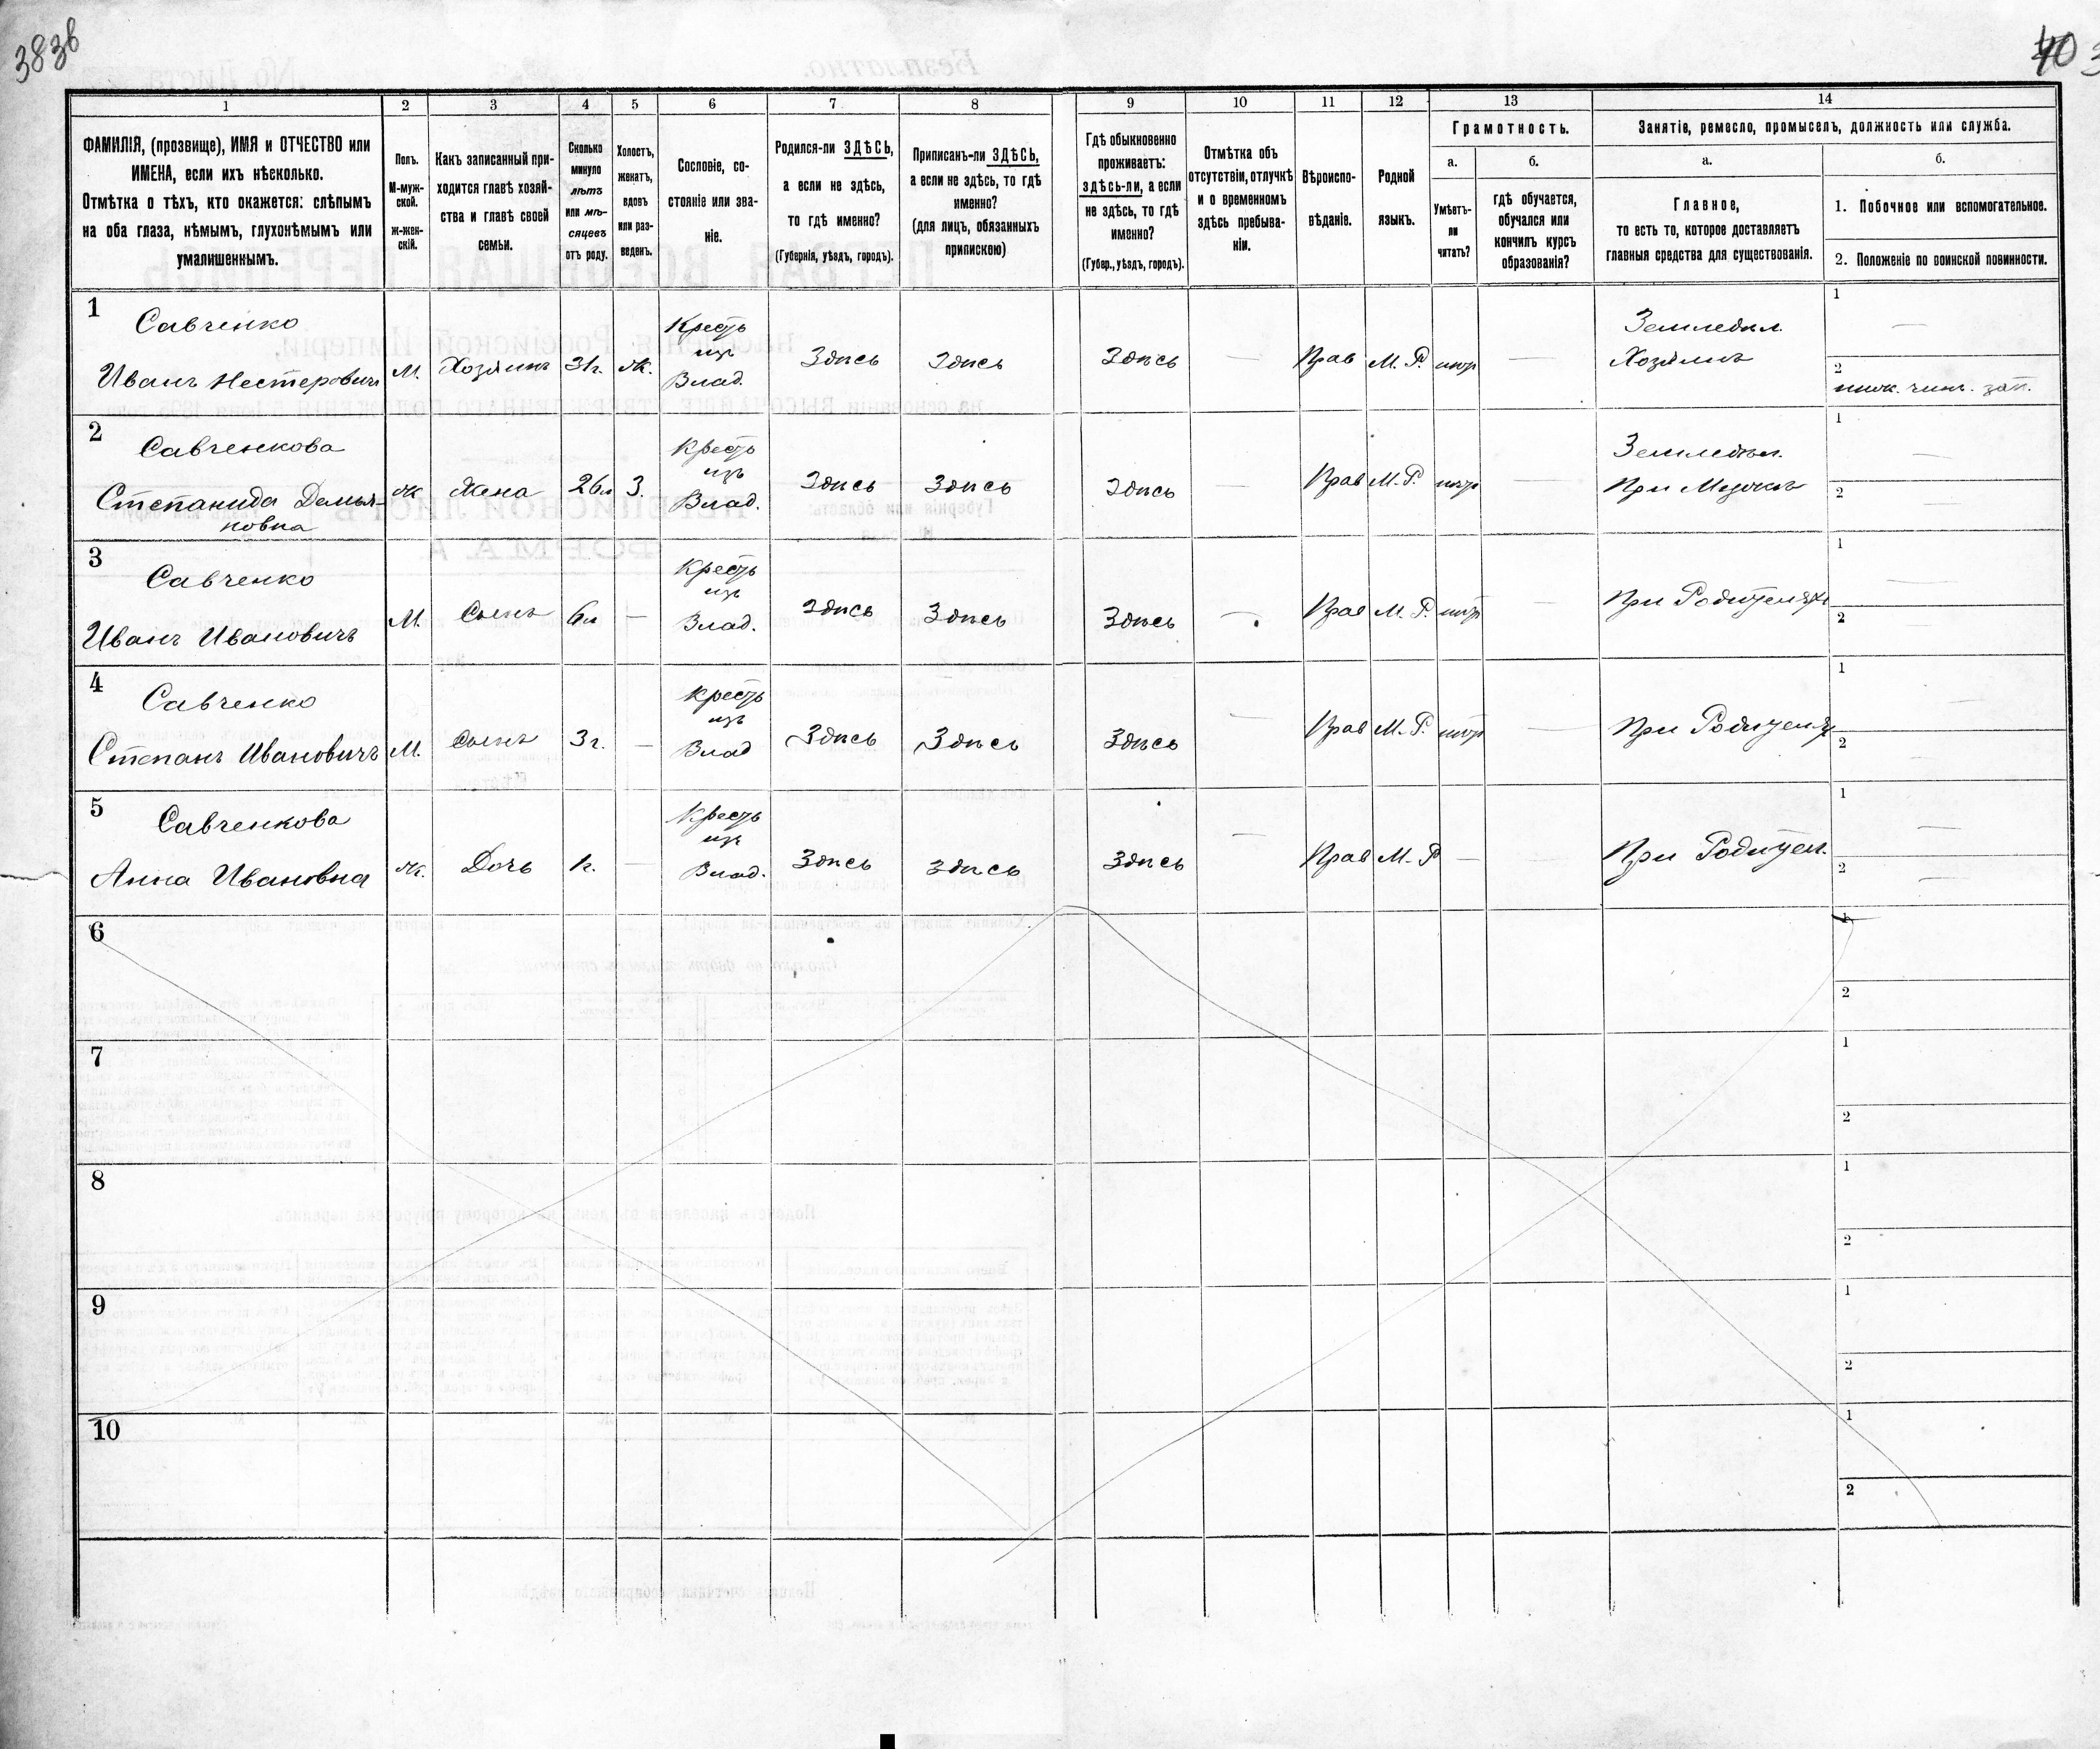 383б
40
1 2 3 4 5 6 7 8 9 10 11 12 13 14
ФАМИЛІЯ, (прозвище), ИМЯ и ОТЧЕСТВО или
ИМЕНА, если ихъ нѣсколько.
Отмѣтка о тѣхъ, кто окажется: слѣпымъ
на оба глаза, нѣмымъ, глухонѣмымъ или
умалишеннымъ.
Полъ.
М-муж-
ской.
ж-жен-
скій.
Какъ записанный при-
ходится главѣ хозяй-
ства и главѣ своей
семьи.
Сколько
минуло
лѣтъ
или мѣ-
сяцевъ
отъ роду.
Холостъ,
женатъ,
вдовъ
или раз-
веденъ.
Сословіе, со-
стояніе или зва-
ніе.
Родился-ли ЗДѢСЬ,
а если не здѣсь,
то гдѣ именно?
(Губернія, уѣздъ, городъ).
Приписанъ-ли ЗДѢСЬ,
а если не здѣсь, то гдѣ
именно?
(для лицъ, обязанныхъ
припискою)
Гдѣ обыкновенно
проживаетъ:
здѣсь-ли, а если
не здѣсь, то гдѣ
именно?
(Губер., уѣздъ, городъ).
Отмѣтка объ
отсутствіи, отлучкѣ
и о временномъ
здѣсь пребыва-
ніи.
Вѣроиспо-
вѣданіе.
Родной
языкъ.
Грамотность.
а.
Умѣетъ-
ли
читать?
б.
гдѣ обучается,
обучался или
кончилъ курсъ
образованія?
Занятіе, ремесло, промыселъ, должность или служба.
а.
Главное,
то есть то, которое доставляетъ
главныя средства для существованія.
б.
1. Побочное или вспомогательное.
2. Положеніе по воинской повинности.
1
Савченко
Иванъ Нестеровичъ
М.
Хозяинъ
31г.
ж.
Кресть
изъ
Влад.
Здѣсь
Здѣсь
Здѣсь
—
Прав
М. Р.
—
Земледѣл.
Хозяинъ
1
—
2
чин. зап.
2
Савченкова
Степанида Демья-
новна
ж
Жена
26л
З.
Кресть
изъ
Влад.
Здѣсь
Здѣсь
Здѣсь
—
Прав
М. Р.
—
Земледѣл.
При Мужѣ
1
—
2
—
3
Савченко
Иванъ Ивановичъ
М.
Сынъ
6л
—
Кресть
изъ
Влад.
Здѣсь
Здѣсь
Здѣсь
—
Прав
М. Р.
—
При Родителях
1
—
2
—
4
Савченко
Степанъ Ивановичъ
М.
Сынъ
3г.
—
Кресть
изъ
Влад
Здѣсь
Здѣсь
Здѣсь
—
Прав
М. Р.
—
При Родителях
1
—
2
—
5
Савченкова
Анна Ивановна
ж.
Дочь
1г.
—
Кресть
изъ
Влад.
Здѣсь
Здѣсь
Здѣсь
—
Прав
М. Р
—
При Родител.
1
—
2
—
6
1
2
7
1
2
8
1
2
9
1
2
10
1
2